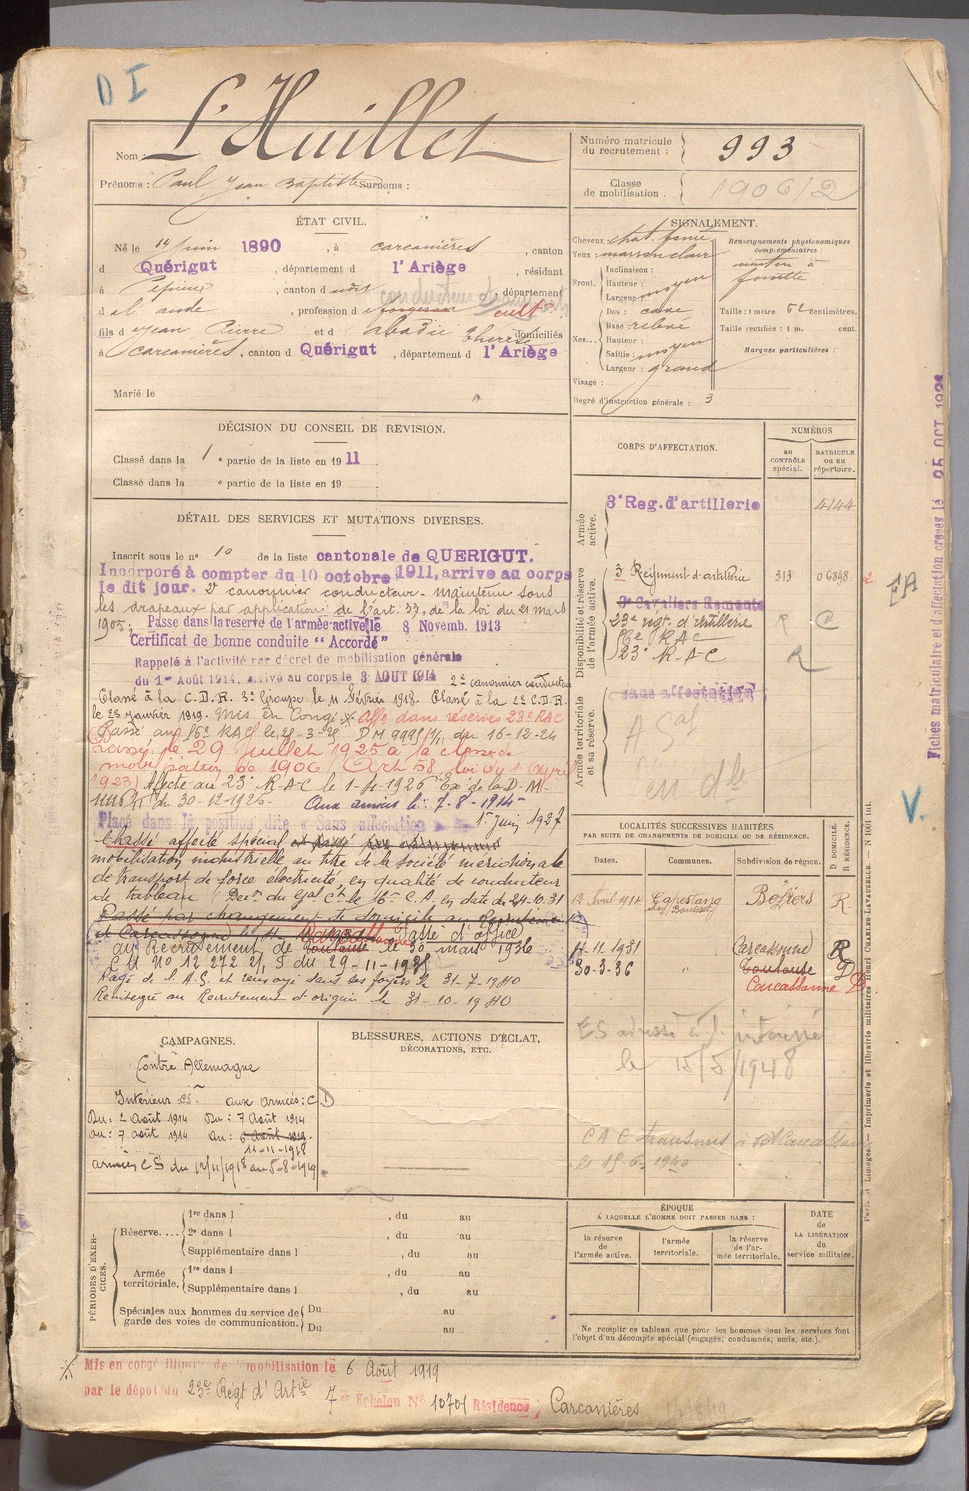 D I
L'Huillet
Nom
Prénoms : Paul Jean Baptiste Surnoms :
Numéro matricule du recrutement : 993
Classe de mobilisation . 1906/2
ÉTAT CIVIL.
Né le 14 Juin 1890 , à Carcanières , canton
d Quérigut , département d l'Ariège , résidant
à , canton d , département
d el aude , profession d cult
fils d Jean Pierre et d Abadie Therèse domiciliés
à Carcanières , canton d Quérigut , département d l'Ariège
Marié le
SIGNALEMENT.
Cheveux chat. foncé
Yeux marron clair
Front. Inclinaison :
Hauteur :
Largeur moyen
Nez... Dos : cave
Base relevé
Hauteur :
Saillie : moyen
Largeur : grand
Visage :
Degré d'instruction générale : 3
Renseignements physionomiques complémentaires :
menton à
fossette
Taille : 1 mètre 52 centimètres.
Taille rectifiée : 1 m. cent.
Marques particulières :
DÉCISION DU CONSEIL DE REVISION.
Classé dans la 1 e partie de la liste en 1911
Classé dans la e partie de la liste en 19
CORPS D'AFFECTATION.
NUMÉROS
AU CONTRÔLE spécial.
MATRICULE OU AU RÉPERTOIRE.
Armée active.
3e Reg. d'artillerie 4144
Disponibilité et réserve de l'armée active.
3 Régiment d'artillerie 313 06898
23e rgt. d'artillerie R C
56e RAC
23e R.A.C
Armée territoriale et sa réserve.
sans affectation
DÉTAIL DES SERVICES ET MUTATIONS DIVERSES.
Inscrit sous le n° 10 de la liste cantonale de QUERIGUT.
Incorporé à compter du 10 octobre 1911, arrive au corps
le dit jour. 2e canonnier conducteur. Maintenu sous
les drapeaux par application de l'art. 33, de la loi du 21 mars
1905. Passe dans la reserve de l'armée active le 8 Novemb. 1913
Certificat de bonne conduite "Accordé"
Rappelé à l'activité par décret de mobilisation générale
du 1er Août 1914, arrivé au corps le 3 AOUT 1914 2e canonnier conducteur
Classé à la C.D.R. 3e Groupe le 11 Février 1918. Classé à la 2e C.D.R.
le 23 Janvier 1919. Mis en Congé X Affé dans réserves 23e RAC
Passé au 56e RAC le 28-3-25 DM 9995 1/11 du 16-12-24
Passé le 29 Juillet 1925 à la classe de
mobilisation de 1906 (Art 58 loi du 1er Avril
1923) Affecté au 23e RAC le 1-1-1926 Ex de la D.M.
du 30-12-1925. Aux armées le : 7-8-1914
Placé dans la position dite « Sans affectation » 1er Juin 1927
Classé affecté spécial
mobilisation industrielle au titre de la société méridionale
de transport de force électricité, en qualité de conducteur
de tableau (Deon du Gal Ct le 16e C.A. en date du 24-10-31
Passé par changement de domicile au Recrutement
de Carcassonne le 11 Passé d'office
au Recrutement de Toulouse Carcassonne le 30 mars 1936
C.M. N° 12 272 2/1 S du 29-11-1935
Rayé de l'A.S. et renvoyé dans les foyers le 31-7-1940
Réintégré au Recrutement d'origine le 31-10-1940
LOCALITÉS SUCCESSIVES HABITÉES
PAR SUITE DE CHANGEMENTS DE DOMICILE OU DE RÉSIDENCE.
Dates. Communes. Subdivision de région. D DOMICILE. R RÉSIDENCE.
12 Avril 1914 Capestang Béziers R
11-11-1931 Carcassonne R
30-3-36 " Toulouse D
Carcassonne D
ES adressé à l'intéressé
le 15/5/1948
CAC transmis à Carcassonne
le 15-6-1940
CAMPAGNES.
Contre Allemagne
Intérieur CS. aux armées : CD
Du : 2 Août 1914 Du : 7 Août 1914
au : 7 août 1914 au : 6 Août 1919.
11-11-1918
armées CS du 12/11/1918 au 5-8-1919
BLESSURES, ACTIONS D'ÉCLAT,
DÉCORATIONS, ETC.
PÉRIODES D'EXERCICES.
Réserve.... 1re dans l , du au
2e dans l , du au
Supplémentaire dans l , du au
Armée territoriale. 1re dans l , du au
Supplémentaire dans l , du au
Spéciales aux hommes du service de garde des voies de communication. Du au
Du au
ÉPOQUE
A LAQUELLE L'HOMME DOIT PASSER DANS :
la réserve de l'armée active.
l'armée territoriale.
la réserve de l'armée territoriale.
DATE de LA LIBÉRATION du service militaire.
Ne remplir ce tableau que pour les hommes dont les services font l'objet d'un décompte spécial (engagés, condamnés, omis, etc.).
X Mis en congé illimité de démobilisation le 6 Août 1919
par le dépôt du 23e Régt d'Artie 7er Echelon N° 10701 Résidence Carcanières
Paris et Limoges. — Imprimerie et librairie militaires Henri CHARLES-LAVAUZELLE.
V.